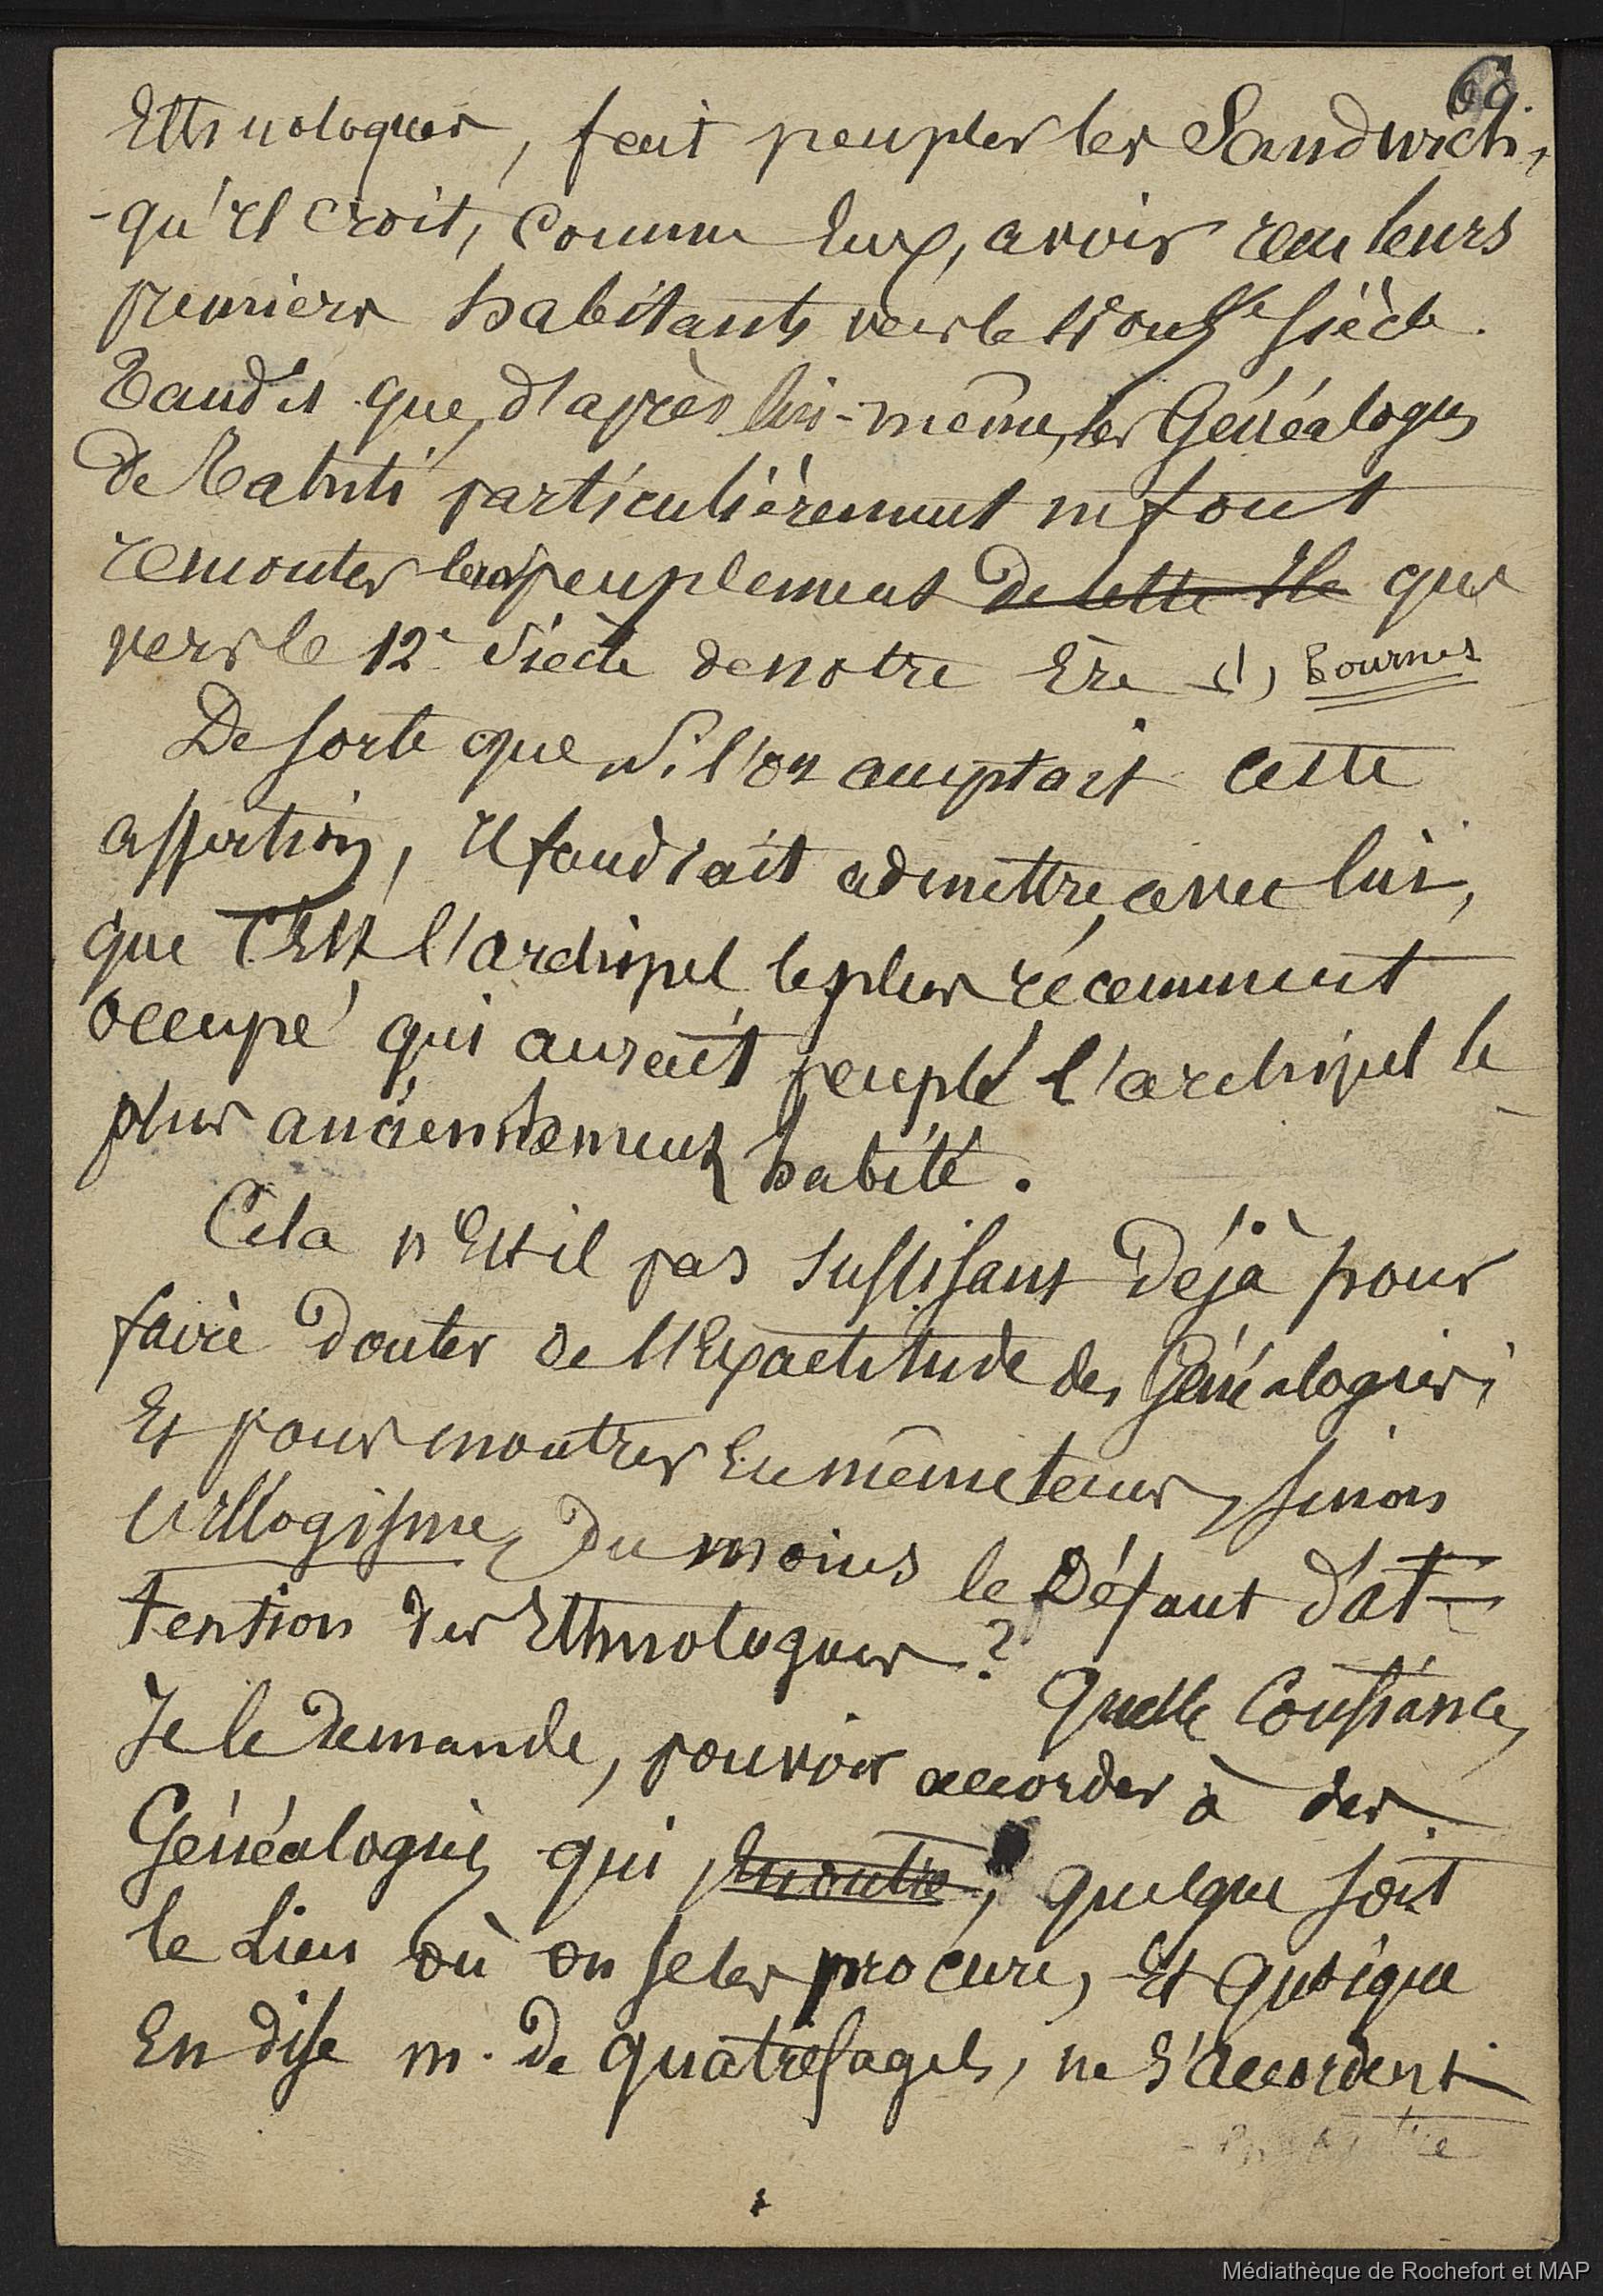 69.
Ethnologues, fait peupler les Sandwich,
-qu'il croit, comme Eux, avoir reçu leurs
premiers habitants vers le 5e ou 6e Siècle.
Tandis que, d'après lui-même, les Généalogies
de Tahiti particulièrement ne font
remonter leur peuplement de cette Ile que
vers le 12e Siècle de notre Ère (1) Tournes
De sorte que, si l'on acceptait cette
assertion, il faudrait admettre, avec lui,
que C'Est l'archipel le plus récemment
occupé qui aurait peuplé l'archipel le
plus anciennement habité.
Cela n'Est-il pas suffisant Déjà pour
faire Douter de l'Exactitude des Généalogies,
Et pour montrer En même temps, sinon
l'illogisme, Du moins le Défaut d'at-
tention des Ethnologues ? Quelle Confiance,
Je le Demande, pouvoir accorder à des
Généalogies qui montre, quelque soit
le Lieu où on se les procure, Et quoique
En dise m. De quatrefages, ne s'accordent
Médiathèque de Rochefort et MAP